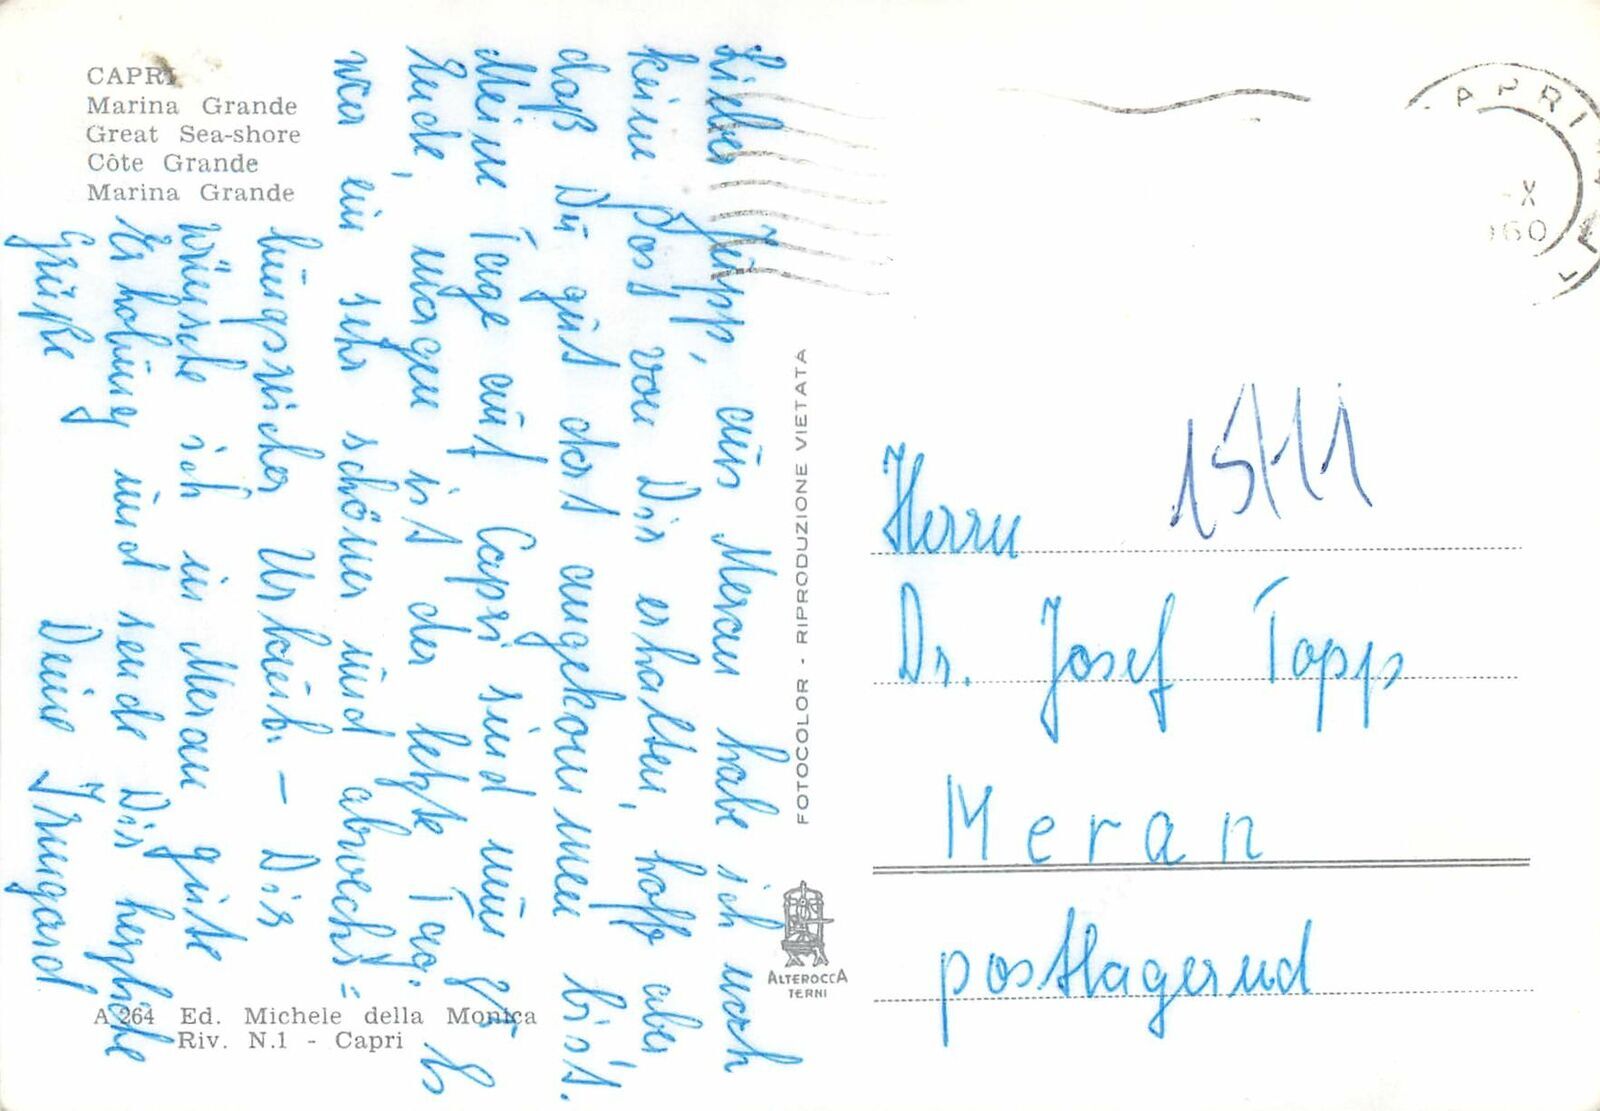 CAPRI
Marina Grande
Great Sea-shore
Côte Grande
Marina Grande
Lieber Jupp, aus Meran habe ich noch
keine Post von Dir erhalten, hoffe aber
daß Du gut dort angekommen bist.
Meine Tage auf Capri sind nun zu
Ende, morgen ist der letzte Tag. Es
war ein sehr schöner und abwechs=
lungsreicher Urlaub. – Dir
wünsche ich in Meran gute
Erholung und sende Dir herzliche
Grüße
Deine Irmgard
A 264 Ed. Michele della Monica
Riv. N.1 - Capri
FOTOCOLOR - RIPRODUZIONE VIETATA
ALTEROCCA
TERNI
CAPRI
-X
960
15/11
Herrn
Dr. Josef Topp
Meran
postlagernd